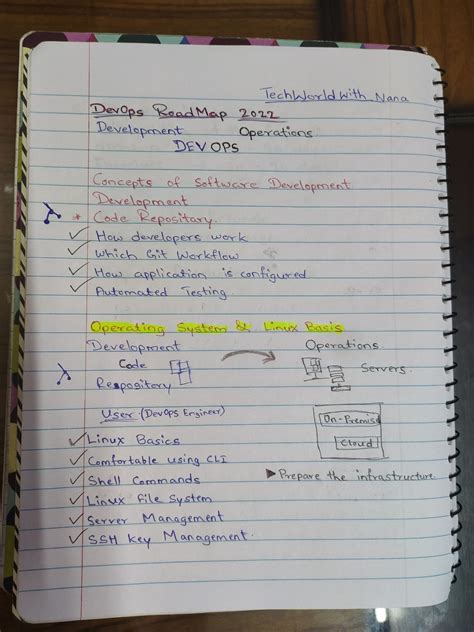 TechWorld with Nana
DevOps RoadMap 2022
Development Operations
DEVOPS
Concepts of Software Development
Development
* Code Repositary
✓ How developers work
✓ Which Git Workflow
✓ How application is configured
✓ Automated Testing
Operating System & Linux Basis
Development Operations
Code
Respository
Servers
User (DevOps Engineer)
On-Premise
Cloud
✓ Linux Basics
✓ Comfortable using CLI
✓ Shell Commands
▶ Prepare the infrastructure
✓ Linux File System
✓ Server Management
✓ SSH Key Management.